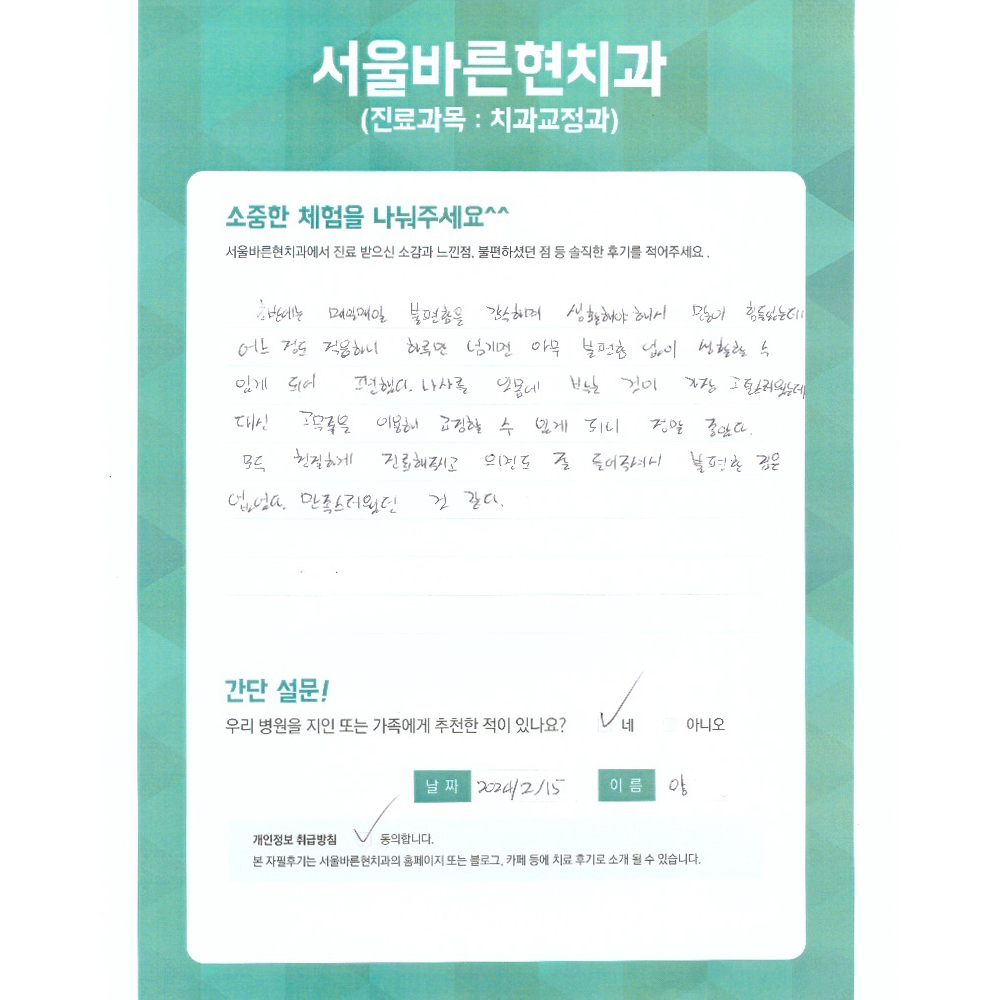 서울바른현치과
(진료과목 : 치과교정과)
소중한 체험을 나눠주세요^^
서울바른현치과에서 진료 받으신 소감과 느낀점, 불편하셨던 점 등 솔직한 후기를 적어주세요.
초반에는 매일매일 불편함을 감수하며 생활해야 해서 많이 힘들었는데
어느 정도 적응하니 하루만 넘기면 아무 불편함 없이 생활할 수
있게 되어 편했다. 나사를 잇몸에 박는 것이 가장 고통스러웠는데
대신 고무줄을 이용해 교정할 수 있게 되니 정말 좋았다.
모두 친절하게 진료해주시고 의견도 잘 들어주셔서 불편한 점은
없었다. 만족스러웠던 것 같다.
간단 설문!
우리 병원을 지인 또는 가족에게 추천한 적이 있나요? 네 아니오
날짜 2024/2/15 이름 양
개인정보 취급방침 동의합니다.
본 자필후기는 서울바른현치과의 홈페이지 또는 블로그, 카페 등에 치료 후기로 소개 될 수 있습니다.